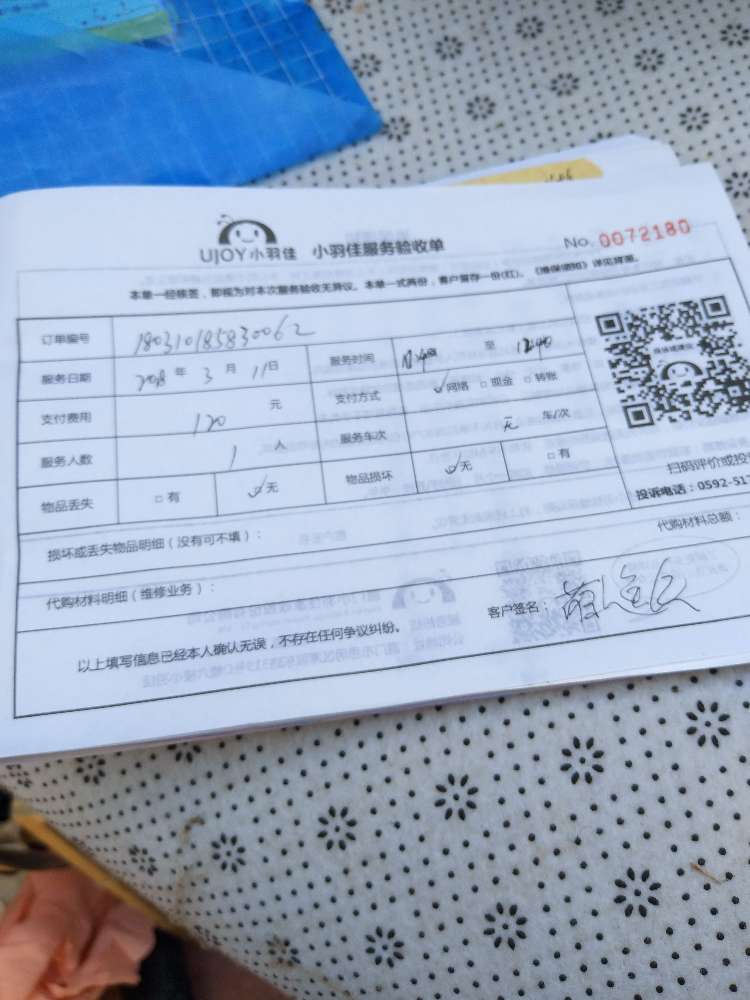 UJOY小羽佳 小羽佳服务验收单 No. 0072180
本单一经核签,即视为对本次服务验收无异议。本单一式两份,客户留存一份(红)。《维保须知》详见背面。
订单编号 180310185830062
服务日期 2018 年 3 月 11 日 服务时间 至 12:40
支付费用 120 元 支付方式 ✓网络 □现金 □转账
服务人数 1 人 服务车次 无 车/次
物品丢失 □有 ✓无 物品损坏 ✓无 □有
扫码评价或投
投诉电话:0592-517
损坏或丢失物品明细(没有可不填):
代购材料明细(维修业务): 代购材料总额:
以上填写信息已经本人确认无误,不存在任何争议纠纷。 客户签名: